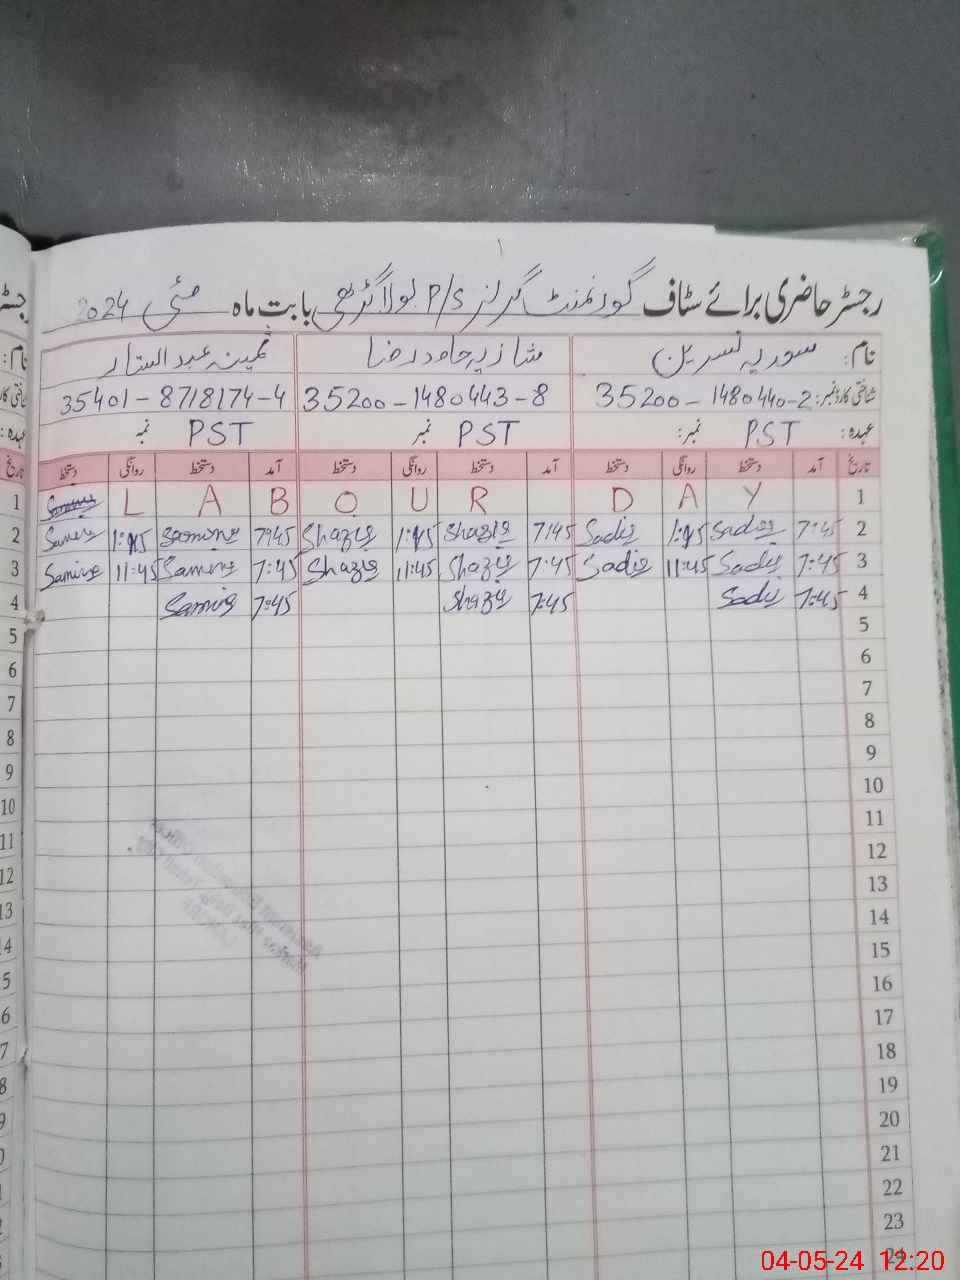 رجسٹر حاضری برائے سٹاف گورنمنٹ گرلز P/S بولا گڑھی بابت ماہ مئی 2024
نام: سوریہ نسرین شازیہ حامد رضا ثمینہ عبدالستار
شناختی کارڈ نمبر: 35200-1480440-2 35200-1480443-8 35401-8718174-4
عہدہ: PST نمبر: PST نمبر PST نمبر
تاریخ آمد دستخط روانگی دستخط آمد دستخط روانگی دستخط آمد دستخط روانگی دستخط
1 L A B O U R D A Y 1
2 Samina 1:45 Samina 7:45 Shazia 1:45 Shazia 7:45 Sadia 1:45 Sadia 7:45 2
3 Samina 11:45 Samina 7:45 Shazia 11:45 Shazia 7:45 Sadia 11:45 Sadia 7:45 3
4 Samina 7:45 Shazia 7:45 Sadia 7:45 4
5 5
6 6
7 7
8 8
9 9
10 10
11 11
12 12
13 13
14
15
16
17
18
19
20
21
22
23
24
04-05-24 12:20